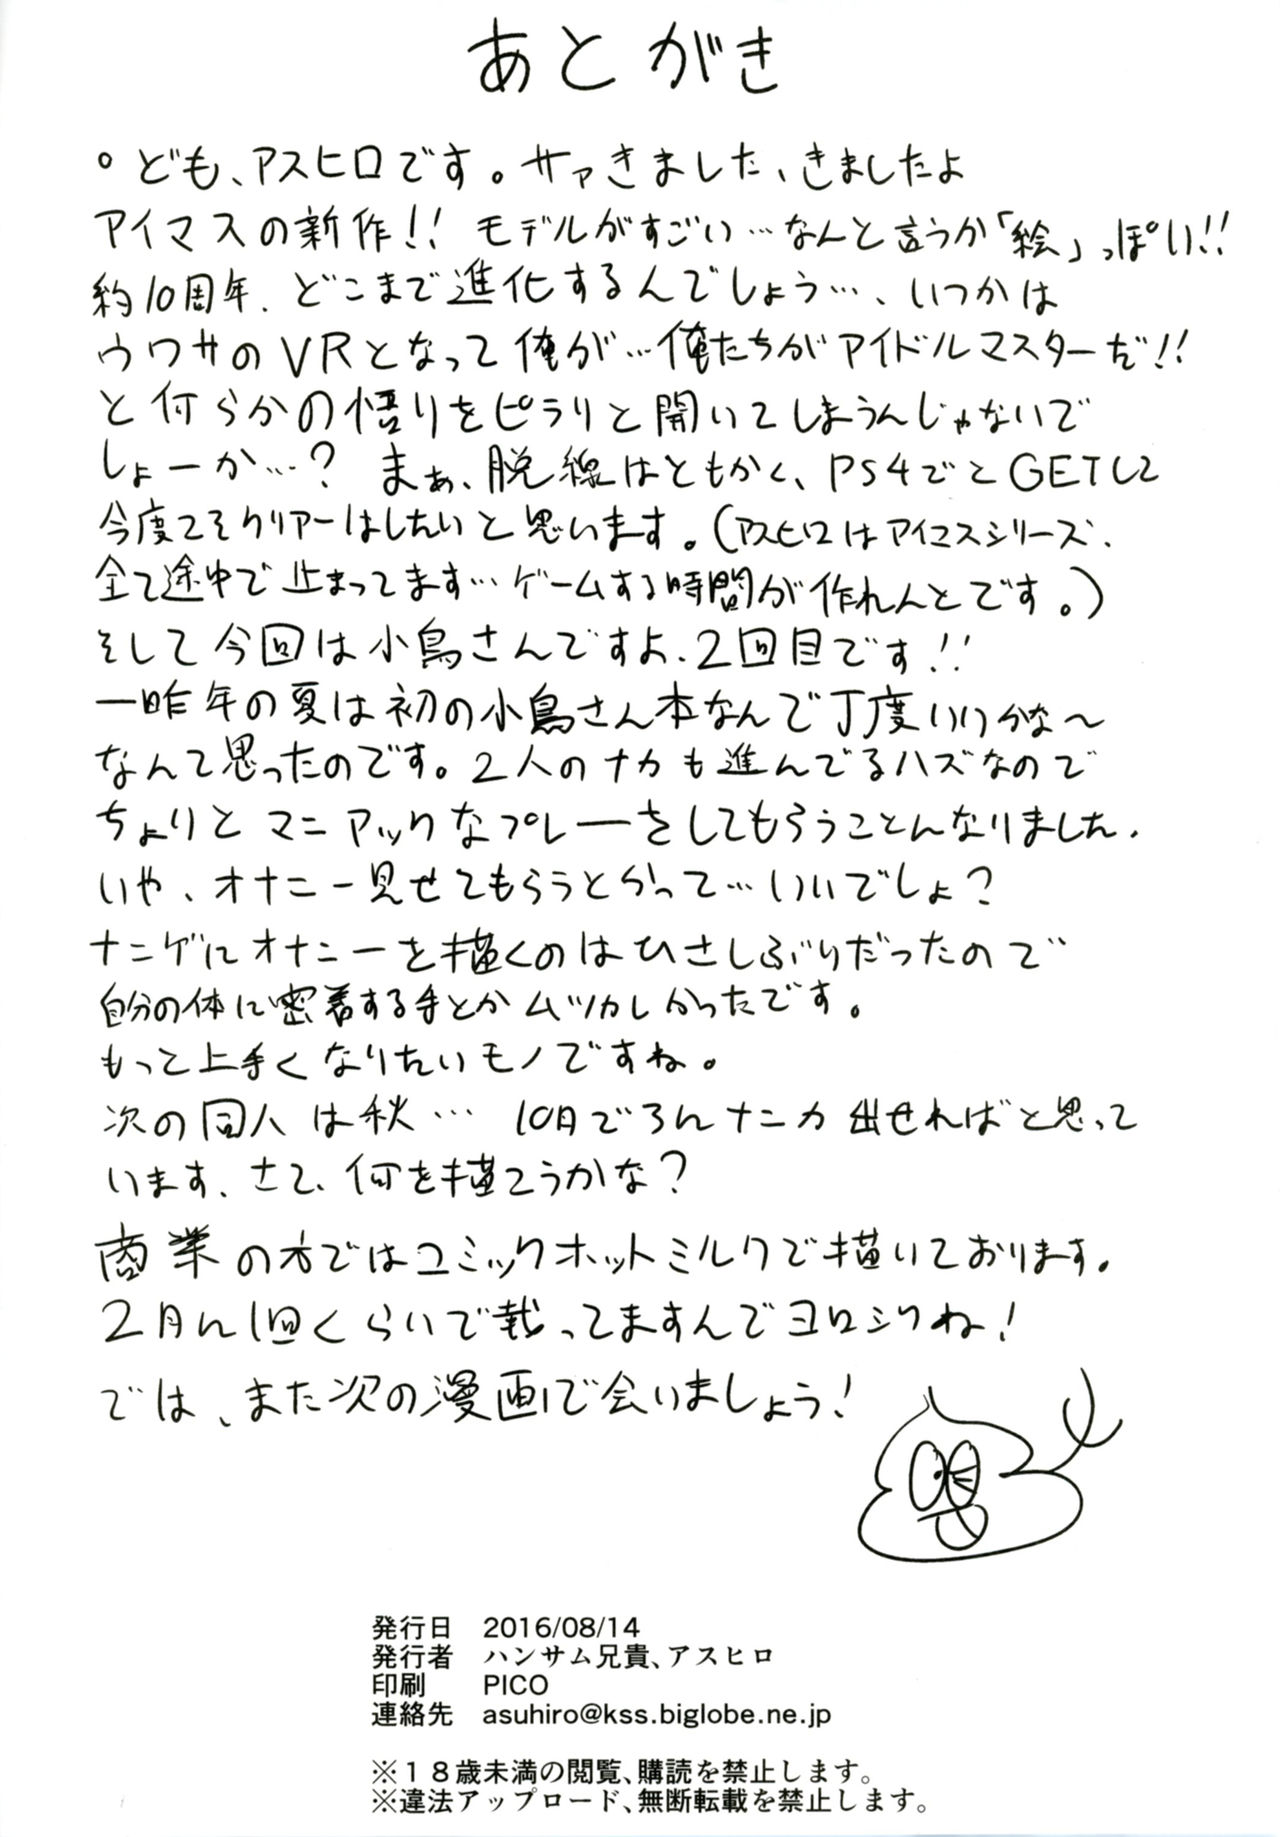 あとがき
°ども、アスヒロです。サァきました、きましたよ
アイマスの新作!! モデルがすごい…なんと言うか「絵」っぽい!!
約10周年、どこまで進化するんでしょう…、いつかは
ウワサのVRとなって俺が…俺たちがアイドルマスターだ!!
と何らかの悟りをピラリと開いてしまうんじゃないで
しょーか…? まぁ、脱線はともかく、PS4でとGETして
今度こそクリアーはしたいと思います。(アスヒロはアイマスシリーズ、
全て途中で止まってます…ゲームする時間が作れんとです。)
そして今回は小鳥さんですよ、2回目です!!
一昨年の夏は初の小鳥さん本なんで丁度いいかな〜
なんて思ったのです。2人のナカも進んでるハズなので
ちょりとマニアックなプレーをしてもらうことんなりました、
いや、オナニー見せてもらうとかって…いいでしょ?
ナニゲにオナニーを描くのはひさしぶりだったので
自分の体に密着する手とかムツカしかったです。
もっと上手くなりたいモノですね。
次の同人は秋… 10月でろんナニカ出せればと思って
います、さて、何を描こうかな?
商業の方ではコミックホットミルクで描いております。
2月に1回くらいで載ってますんでヨロシクね!
では、また次の漫画で会いましょう!
発行日 2016/08/14
発行者 ハンサム兄貴、アスヒロ
印刷 PICO
連絡先 asuhiro@kss.biglobe.ne.jp
※１８歳未満の閲覧、購読を禁止します。
※違法アップロード、無断転載を禁止します。